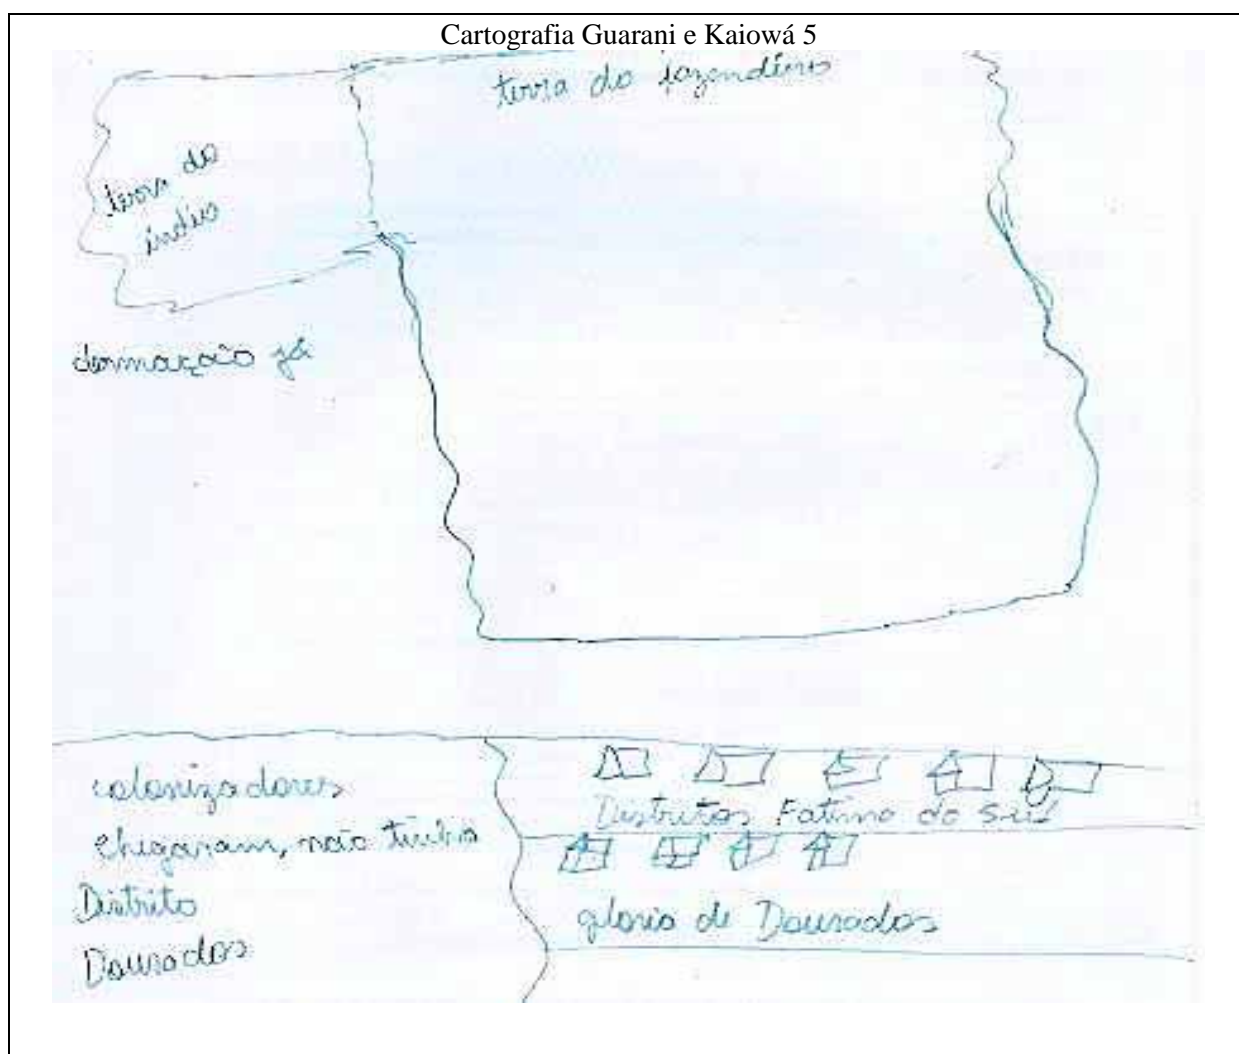 Cartografia Guarani e Kaiowá 5
terra do fazendeiro
terra do
índio
demarcação já
colonizadores
chegaram, não tinha
Distrito
Dourados
Distritos Fatima do Sul
gloria de Dourados